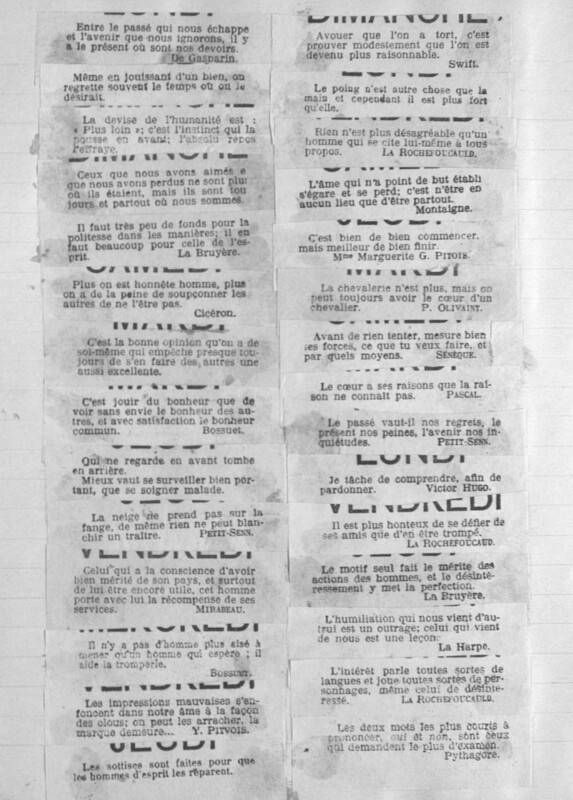 LUNDI
Entre le passé qui nous échappe
et l'avenir que nous ignorons, il y
a le présent où sont nos devoirs.
De Gasparin.
Même en jouissant d'un bien, on
regrette souvent le temps où on le
désirait.
La devise de l'humanité est :
« Plus loin »; c'est l'instinct qui la
pousse en avant; l'absolu repos
l'effraye.
DIMANCHE
Ceux que nous avons aimés e
que nous avons perdus ne sont plus
où ils étaient, mais ils sont tou
jours et partout où nous sommes.
Il faut très peu de fonds pour la
politesse dans les manières; il en
faut beaucoup pour celle de l'es-
prit. La Bruyère.
SAMEDI
Plus on est honnête homme, plus
on a de la peine de soupçonner les
autres de ne l'être pas.
Cicéron.
MARDI
C'est la bonne opinion qu'on a de
soi-même qui empêche presque tou-
jours de s'en faire des autres une
aussi excellente.
MARDI
C'est jouir du bonheur que de
voir sans envie le bonheur des au-
tres, et avec satisfaction le bonheur
commun. Bossuet.
JEUDI
Qui ne regarde en avant tombe
en arrière.
Mieux vaut se surveiller bien por-
tant, que se soigner malade.
JEUDI
La neige ne prend pas sur la
fange, de même rien ne peut blan-
chir un traître. PETIT-SENN.
VENDREDI
Celui qui a la conscience d'avoir
bien mérité de son pays, et surtout
de lui être encore utile, cet homme
porte avec lui la récompense de ses
services. MIRABEAU.
MERCREDI
Il n'y a pas d'homme plus aisé à
mener qu'un homme qui espère ; il
aide la tromperie.
BOSSUET.
VENDREDI
Les impressions mauvaises s'en-
foncent dans notre âme à la façon
des clous; on peut les arracher, la
marque demeure... Y. PITVOIS.
JEUDI
Les sottises sont faites pour que
les hommes d'esprit les réparent.
DIMANCHE
Avouer que l'on a tort, c'est
prouver modestement que l'on est
devenu plus raisonnable.
Swift.
LUNDI
Le poing n'est autre chose que la
main et cependant il est plus fort
qu'elle.
Rien n'est plus désagréable qu'un
homme qui se cite lui-même à tous
propos. LA ROCHEFOUCAULD.
SAMEDI
L'âme qui n'a point de but établi
s'égare et se perd; c'est n'être en
aucun lieu que d'être partout.
Montaigne.
JEUDI
C'est bien de bien commencer,
mais meilleur de bien finir.
Mme Marguerite G. PITOIS.
MARDI
La chevalerie n'est plus, mais on
peut toujours avoir le cœur d'un
chevalier. P. OLIVAINT.
SAMEDI
Avant de rien tenter, mesure bien
tes forces, ce que tu veux faire, et
par quels moyens. SÉNÈQUE.
MARDI
Le cœur a ses raisons que la rai-
son ne connaît pas. PASCAL.
Le passé vaut-il nos regrets, le
présent nos peines, l'avenir nos in-
quiétudes. PETIT-SENN.
LUNDI
Je tâche de comprendre, afin de
pardonner. Victor HUGO.
VENDREDI
Il est plus honteux de se défier de
ses amis que d'en être trompé.
LA ROCHEFOUCAUD.
JEUDI
Le motif seul fait le mérite des
actions des hommes, et le désinté-
ressement y met la perfection.
La Bruyère.
L'humiliation qui nous vient d'au-
trui est un outrage; celui qui vient
de nous est une leçon.
La Harpe.
L'intérêt parle toutes sortes de
langues et joue toutes sortes de per-
sonnages, même celui de désinté-
ressé. LA ROCHEFOUCAULD.
Les deux mots les plus courts à
prononcer, oui et non, sont ceux
qui demandent le plus d'examen.
Pythagore.